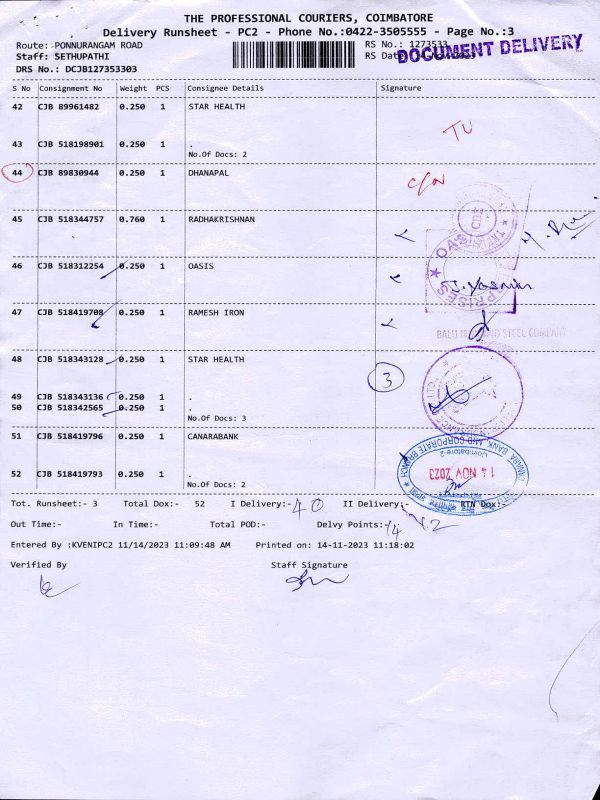 THE PROFESSIONAL COURIERS, COIMBATORE
Delivery Runsheet - PC2 - Phone No.:0422-3505555 - Page No.:3
Route: PONNURANGAM ROAD RS No.: 1273533
DOCUMENT DELIVERY
Staff: SETHUPATHI RS Date
DRS No.: DCJB127353303
S No Consignment No Weight PCS Consignee Details Signature
42 CJB 89961482 0.250 1 STAR HEALTH
TU
43 CJB 518198901 0.250 1 .
No.Of Docs: 2
44 CJB 89830944 0.250 1 DHANAPAL
45 CJB 518344757 0.760 1 RADHAKRISHNAN
46 CJB 518312254 0.250 1 OASIS
47 CJB 518419708 0.250 1 RAMESH IRON
BALU IRON AND STEEL COMPANY
48 CJB 518343128 0.250 1 STAR HEALTH
3
49 CJB 518343136 0.250 1 .
50 CJB 518342565 0.250 1 .
No.Of Docs: 3
51 CJB 518419796 0.250 1 CANARABANK
CANARA BANK, MID CORPORATE BRANCH
Coimbatore-2
14 NOV 2023
52 CJB 518419793 0.250 1 .
No.Of Docs: 2
Tot. Runsheet:- 3 Total Dox:- 52 I Delivery:- 40 II Delivery:- RTN Dox:-
Out Time:- In Time:- Total POD:- Delvy Points:- 14
Entered By :KVENIPC2 11/14/2023 11:09:48 AM Printed on: 14-11-2023 11:18:02
Verified By Staff Signature